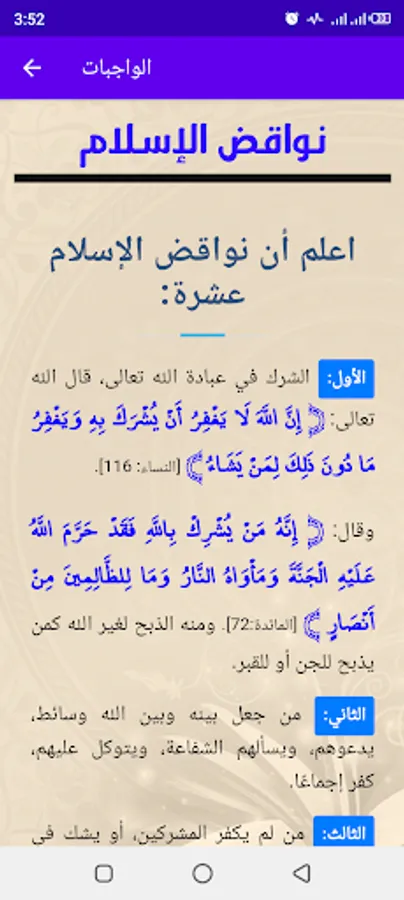 3:52
الواجبات
نواقض الإسلام
اعلم أن نواقض الإسلام
عشرة:
الأول: الشرك في عبادة الله تعالى، قال الله
تعالى: ﴿ إِنَّ اللَّهَ لَا يَغْفِرُ أَنْ يُشْرَكَ بِهِ وَيَغْفِرُ
مَا دُونَ ذَلِكَ لِمَنْ يَشَاءُ ﴾ [النساء: 116].
وقال: ﴿ إِنَّهُ مَنْ يُشْرِكْ بِاللَّهِ فَقَدْ حَرَّمَ اللَّهُ
عَلَيْهِ الْجَنَّةَ وَمَأْوَاهُ النَّارُ وَمَا لِلظَّالِمِينَ مِنْ
أَنْصَارٍ ﴾ [المائدة:72]. ومنه الذبح لغير الله كمن
يذبح للجن أو للقبر.
الثاني: من جعل بينه وبين الله وسائط،
يدعوهم، ويسألهم الشفاعة، ويتوكل عليهم،
كفر إجماعًا.
الثالث: من لم يكفر المشركين، أو يشك في